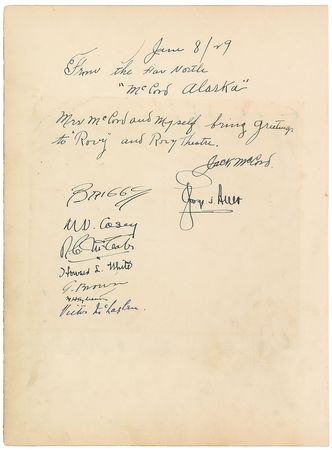 June 8/29
From the Far North
"McCord Alaska"
Mrs McCord and Myself bring greetings
to "Roxy" and Roxy Theatre.
Jack McCord
BRIGGY
W. N. Cosey
Howard L. White
G. Brown
Victor McLaglen